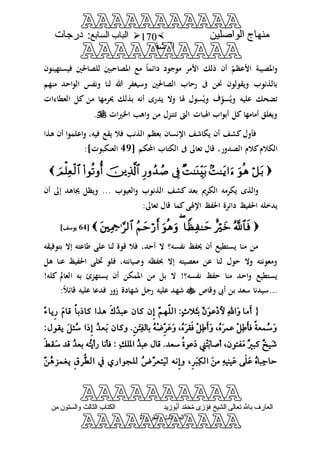 منهاج الواصلين
170
الباب السابع: درجات
والمصيبة الأعظم أن ذلك الأمر موجود دائماً مع المصاحبين للصالحين فيستهينون
بالذنوب ويقولون نحن في رحاب الصالحين وسيغفر الله لنا ونفس الواحد منهم
تضحك عليه ويُسوِّف ويُسول لها ولا يدرى أنه بذلك يحرمها من كل العطاءات
ويغلق أمامها كل أبواب الهبات التى تتنزل من واهب الخيرات .
فأول كشف أن يكاشف الإنسان بعظم الذنب فلا يقع فيه، واعلموا أن هذا
الكلام كلام الصدور، قال تعالى فى الكتاب المحكم [49 العنكبوت]:
﴿ بَلْ هُوَ ءَايَٰتٌۢ بَيِّنَٰتٌ فِى صُدُورِ ٱلَّذِينَ أُوتُوا۟ ٱلْعِلْمَ ﴾
والذى يكرمه الكريم بعد كشف الذنوب والعيوب ... ويظل يجاهد إلى أن
يدخله الحفيظ دائرة الحفظ الإلهى كما قال تعالى:
﴿ فَٱللَّهُ خَيْرٌ حَٰفِظًا ۖ وَهُوَ أَرْحَمُ ٱلرَّٰحِمِينَ ﴾ [64 يوسف]
من منا يستطيع أن يحفظ نفسه؟ لا أحد، فلا قوة لنا على طاعته إلا بتوفيقه
ومعونته ولا حول لنا عن معصيته إلا بحفظه وصيانته، فلو تخلى الحفيظ عنا هل
يستطيع واحد منا حفظ نفسه؟! لا بل من الممكن أن يستهزئ به العالم كله!
...سيدنا سعد بن أبى وقاص شهد عليه رجل شهادة زور فدعا عليه قائلاً:
{ أما واللهِ لأدْعوَنَّ بثلاثٍ: اللَّهمَّ إن كان عبدُكَ هذا كاذباً قامَ رِياءً
وسُمعةً فأطِلْ عمرَهُ، وأطِلْ فَقْرَهُ، وعَرِّضْهُ بالفِتَنِ. وكان بَعدُ إذا سُئلَ يقول:
شيخٌ كبيرٌ مَفتون، أصابَتْني دَعوةُ سعد. قال عبدُ الملكِ : فأنا رأيتُه بعدُ قد سقَطَ
حاجِباهُ عَلَى عينَيهِ مِنَ الكِبَرِ، وإنه ليَتعرَّضُ للجواري في الطُّرقِ يغمزهُنَّ
العارف بالله تعالى الشيخ فوزى مُحمد أبوزيد
الكتاب الثالث والستون من